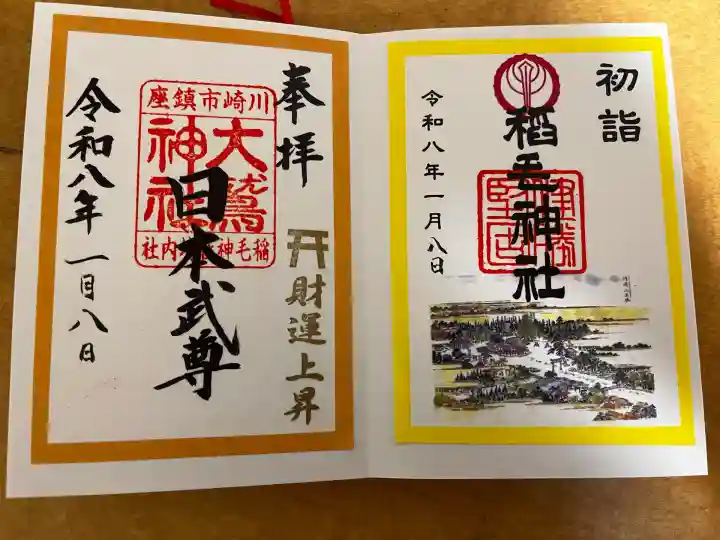 初詣
稲毛神社
令和八年一月八日
奉拝
⛩財運上昇
川崎市鎮座
大鷲
神社
稲毛神社境内社
日本武尊
令和八年一月八日